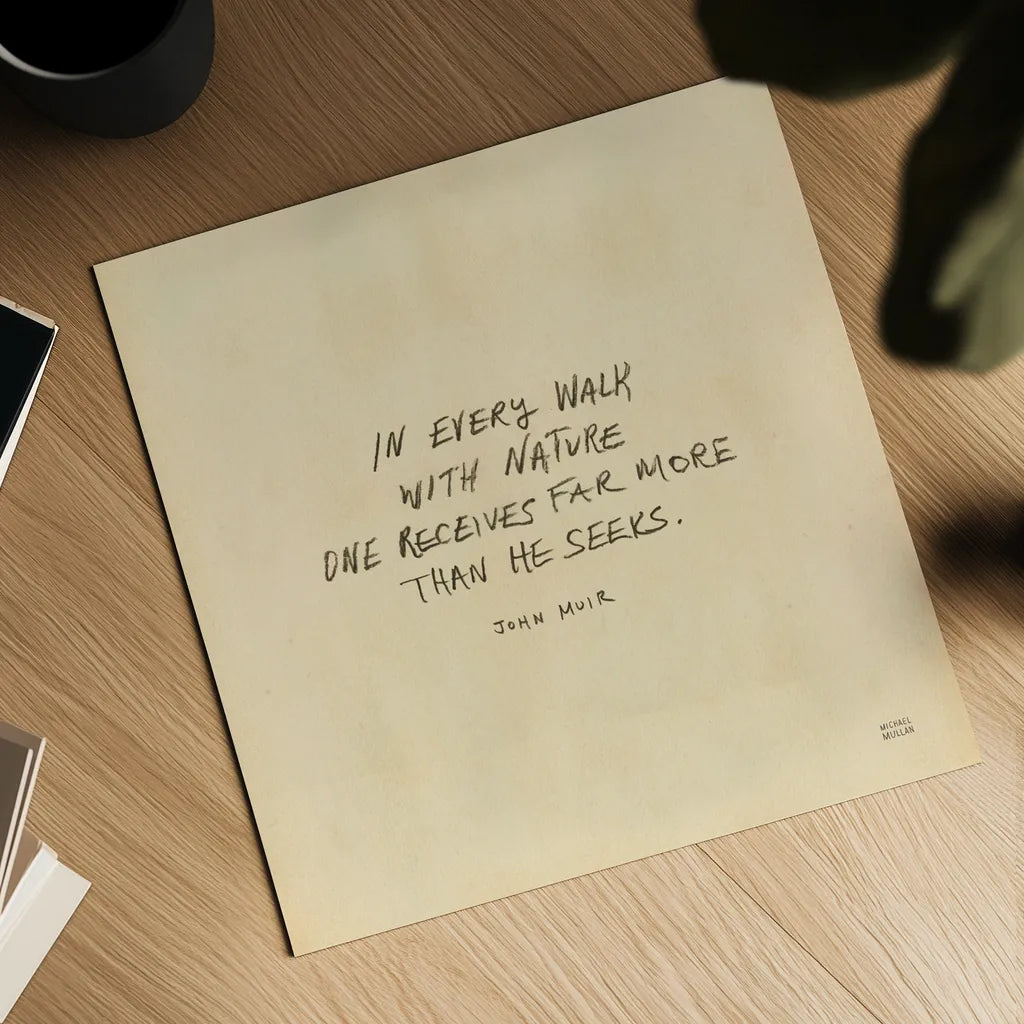 IN EVERY WALK
WITH NATURE
ONE RECEIVES FAR MORE
THAN HE SEEKS.
JOHN MUIR
MICHAEL
MULLAN